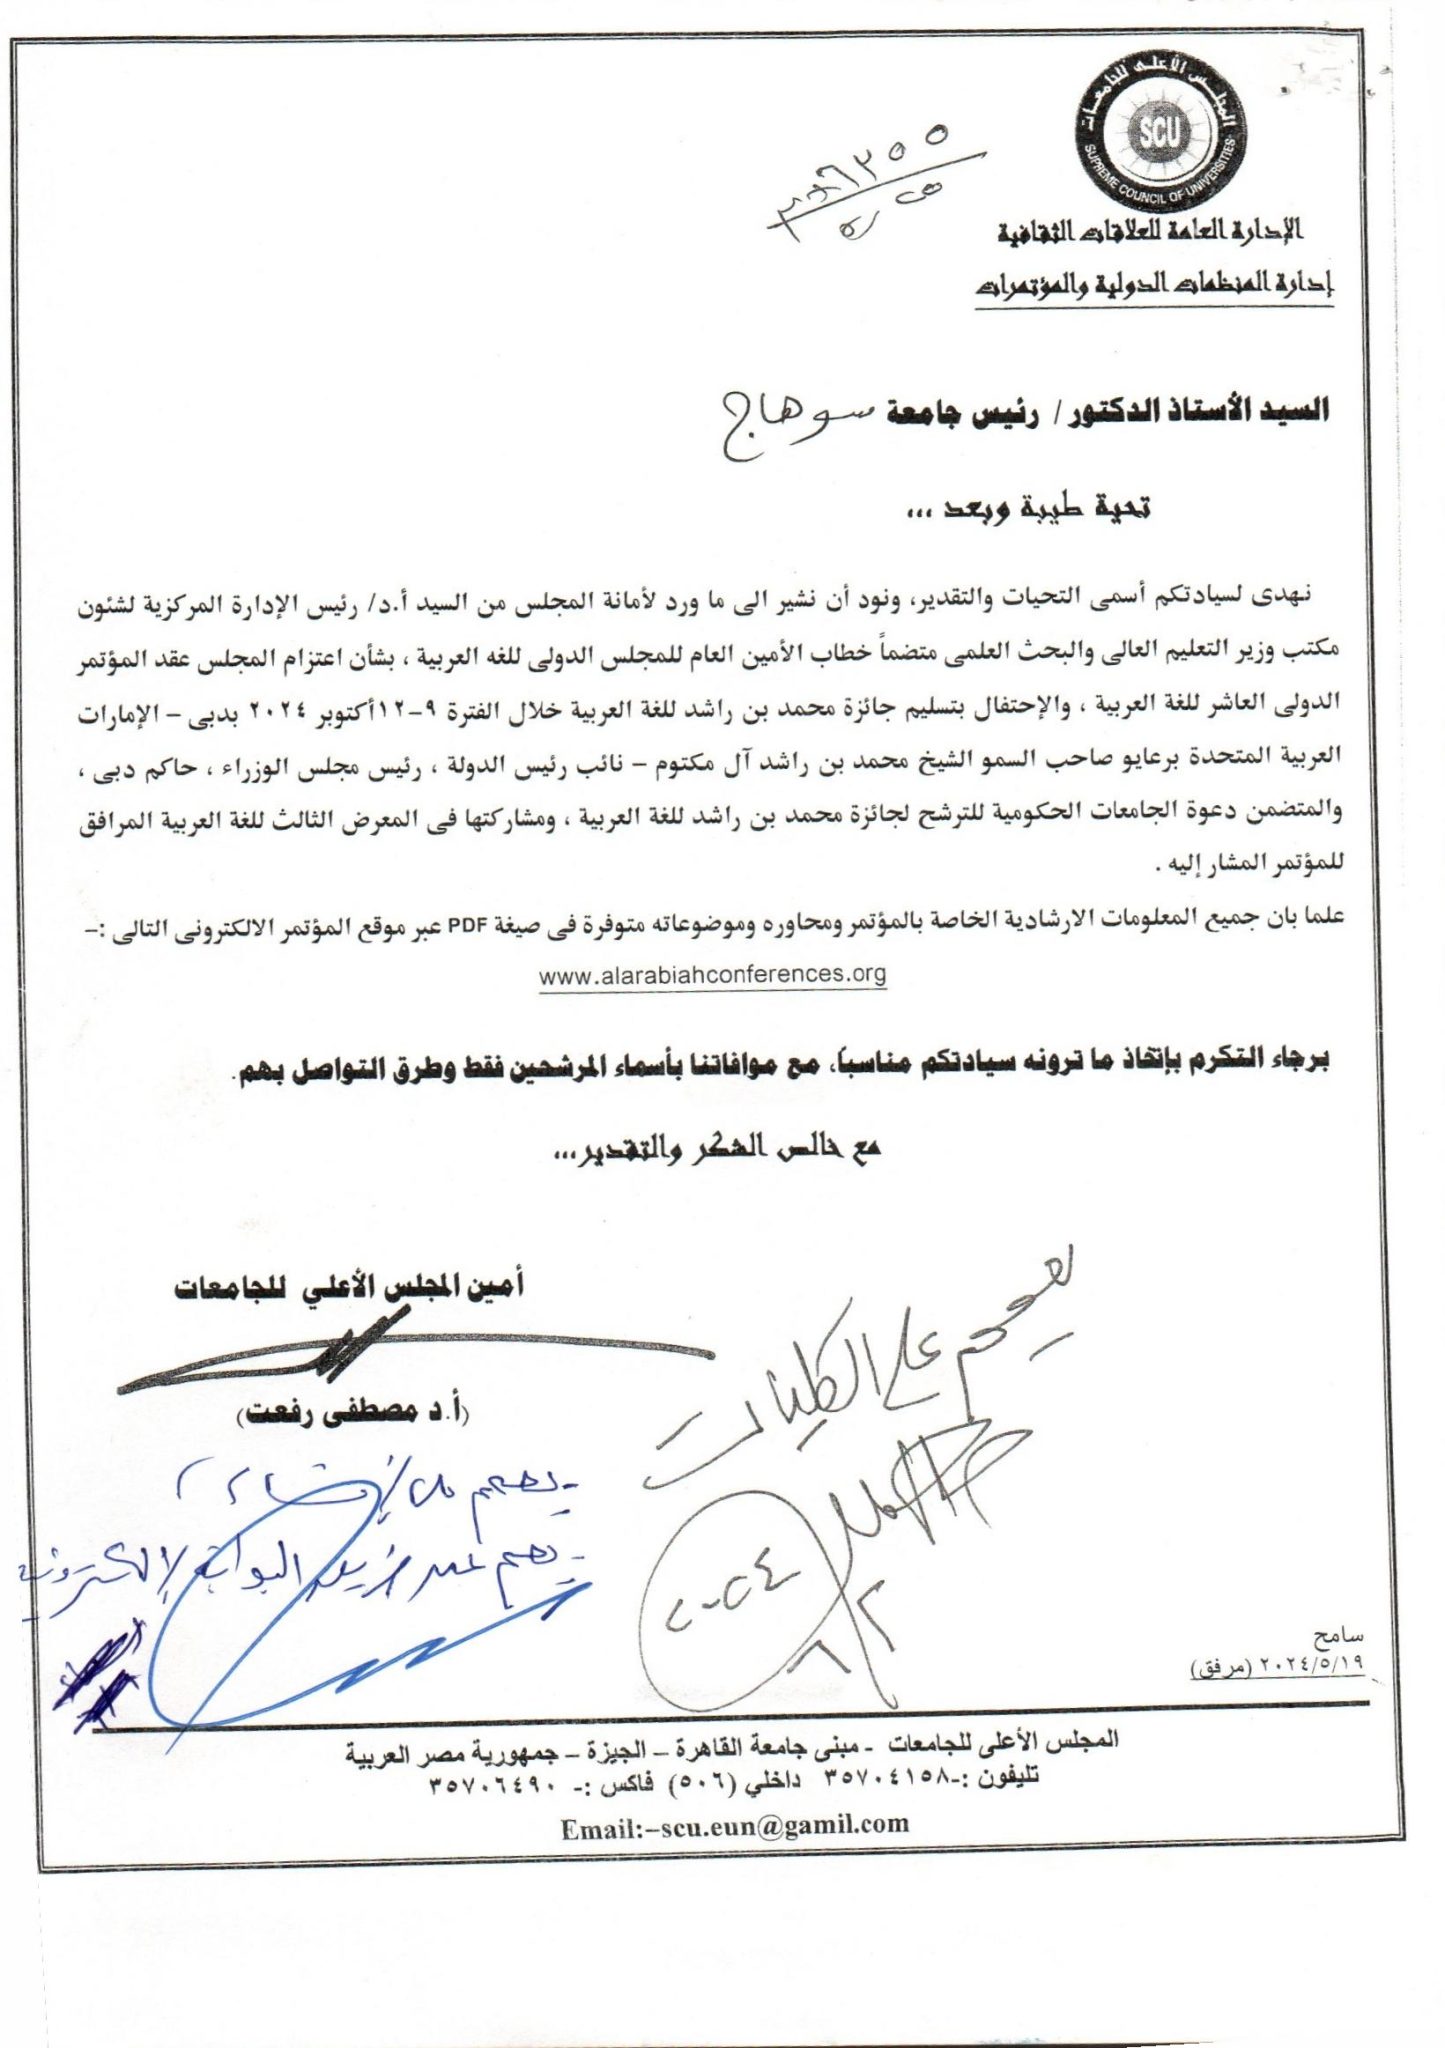 المجلس الأعلى للجامعات
SCU
SUPREME COUNCIL OF UNIVERSITIES
الإدارة العامة للعلاقات الثقافية
إدارة المنظمات الدولية والمؤتمرات
السيد الأستاذ الدكتور/ رئيس جامعة سوهاج
تحية طيبة وبعد ...
نهدى لسيادتكم أسمى التحيات والتقدير، ونود أن نشير الى ما ورد لأمانة المجلس من السيد أ.د/ رئيس الإدارة المركزية لشئون
مكتب وزير التعليم العالى والبحث العلمى متضماً خطاب الأمين العام للمجلس الدولى للغه العربية ، بشأن اعتزام المجلس عقد المؤتمر
الدولى العاشر للغة العربية ، والإحتفال بتسليم جائزة محمد بن راشد للغة العربية خلال الفترة ٩-١٢أكتوبر ٢٠٢٤ بدبى – الإمارات
العربية المتحدة برعايو صاحب السمو الشيخ محمد بن راشد آل مكتوم – نائب رئيس الدولة ، رئيس مجلس الوزراء ، حاكم دبى ،
والمتضمن دعوة الجامعات الحكومية للترشح لجائزة محمد بن راشد للغة العربية ، ومشاركتها فى المعرض الثالث للغة العربية المرافق
للمؤتمر المشار إليه .
علما بان جميع المعلومات الارشادية الخاصة بالمؤتمر ومحاوره وموضوعاته متوفرة فى صيغة PDF عبر موقع المؤتمر الالكترونى التالى :–
www.alarabiahconferences.org
برجاء التكرم بإتخاذ ما ترونه سيادتكم مناسباً، مع موافاتنا بأسماء المرشحين فقط وطرق التواصل بهم.
مع خالص الشكر والتقدير...
أمين المجلس الأعلي للجامعات
(أ.د مصطفى رفعت)
يعمم على الكليات
٢٠٢٤
البوابة الإلكترونية
سامح
٢٠٢٤/٥/١٩ (مرفق)
المجلس الأعلى للجامعات - مبنى جامعة القاهرة – الجيزة – جمهورية مصر العربية
تليفون :-٣٥٧٠٤١٥٨ داخلي (٥٠٦) فاكس :- ٣٥٧٠٦٤٩٠
Email:–scu.eun@gamil.com